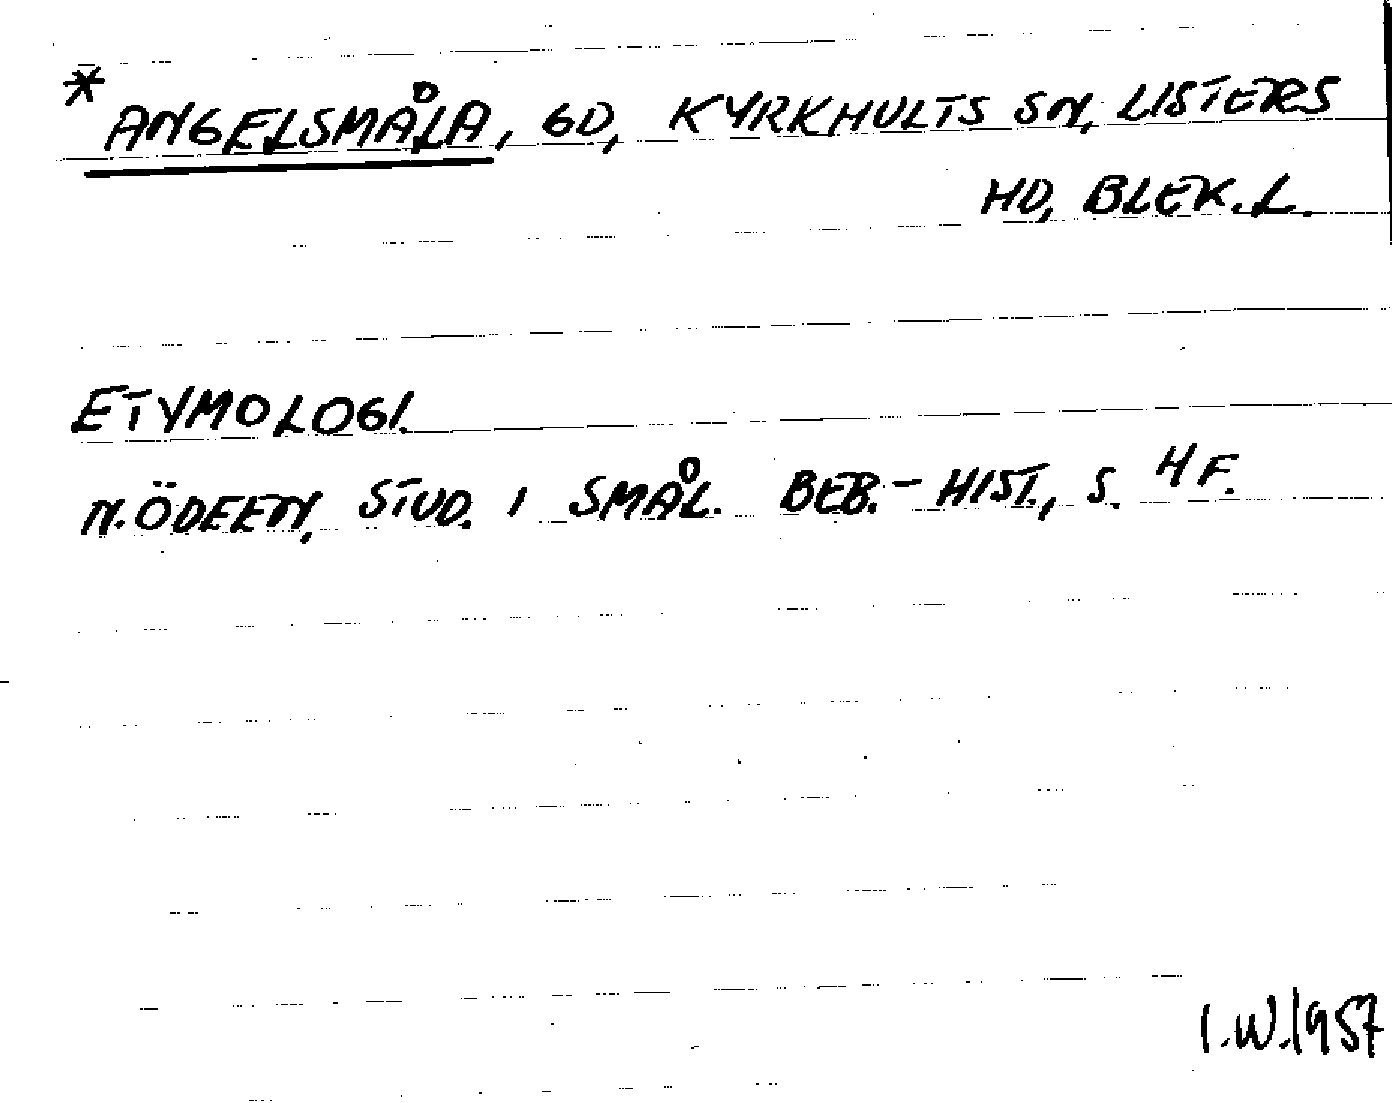 * ANGELSMÅLA, GD, KYRKHULTS SN, LISTERS
HD, BLEK.L.
ETYMOLOGI.
N. ÖDEEN, STUD. I SMÅL. BEB.-HIST., S. 4 F.
I.W.1957